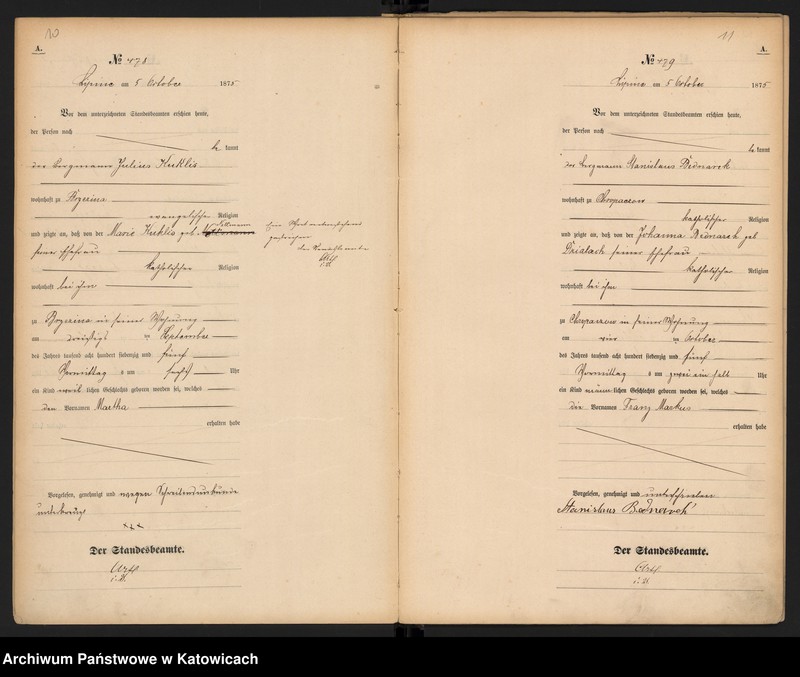 10
A.
№ 478
Lipine am 5 October 1875
Vor dem unterzeichneten Standesbeamten erschien heute,
der Person nach
be kannt
der Bergmann Julius Kuklis
wohnhaft zu
evangelischer Religion
und zeigte an, daß von der Marie Kuklis geb
seiner Ehefrau
katholischer Religion
wohnhaft bei ihm
zu in seiner Wohnung
am dreißigsten September
des Jahres tausend acht hundert siebenzig und fünf
Vormittag s um sechs Uhr
ein Kind weib lichen Geschlechts geboren worden sei, welches
den Vornamen Martha
erhalten habe
Vorgelesen, genehmigt und wegen Schreibensunkunde
unterkreuzt
xxx
Der Standesbeamte.
i.V.
Ein Wort
gestrichen
der Standesbeamte
i.V.
11
A.
№ 479
Lipine am 5 October 1875
Vor dem unterzeichneten Standesbeamten erschien heute,
der Person nach
be kannt
der Bergmann Stanislaus Bednarek
wohnhaft zu Chropaczow
katholischer Religion
und zeigte an, daß von der Johanna Bednarek geb
seiner Ehefrau
katholischer Religion
wohnhaft bei ihm
zu Chropaczow in seiner Wohnung
am vier October
des Jahres tausend acht hundert siebenzig und fünf
Vormittag s um zwei ein halb Uhr
ein Kind männ lichen Geschlechts geboren worden sei, welches
die Vornamen Franz Markus
erhalten habe
Vorgelesen, genehmigt und unterschrieben
Stanislaus
Der Standesbeamte.
i.V.
Archiwum Państwowe w Katowicach